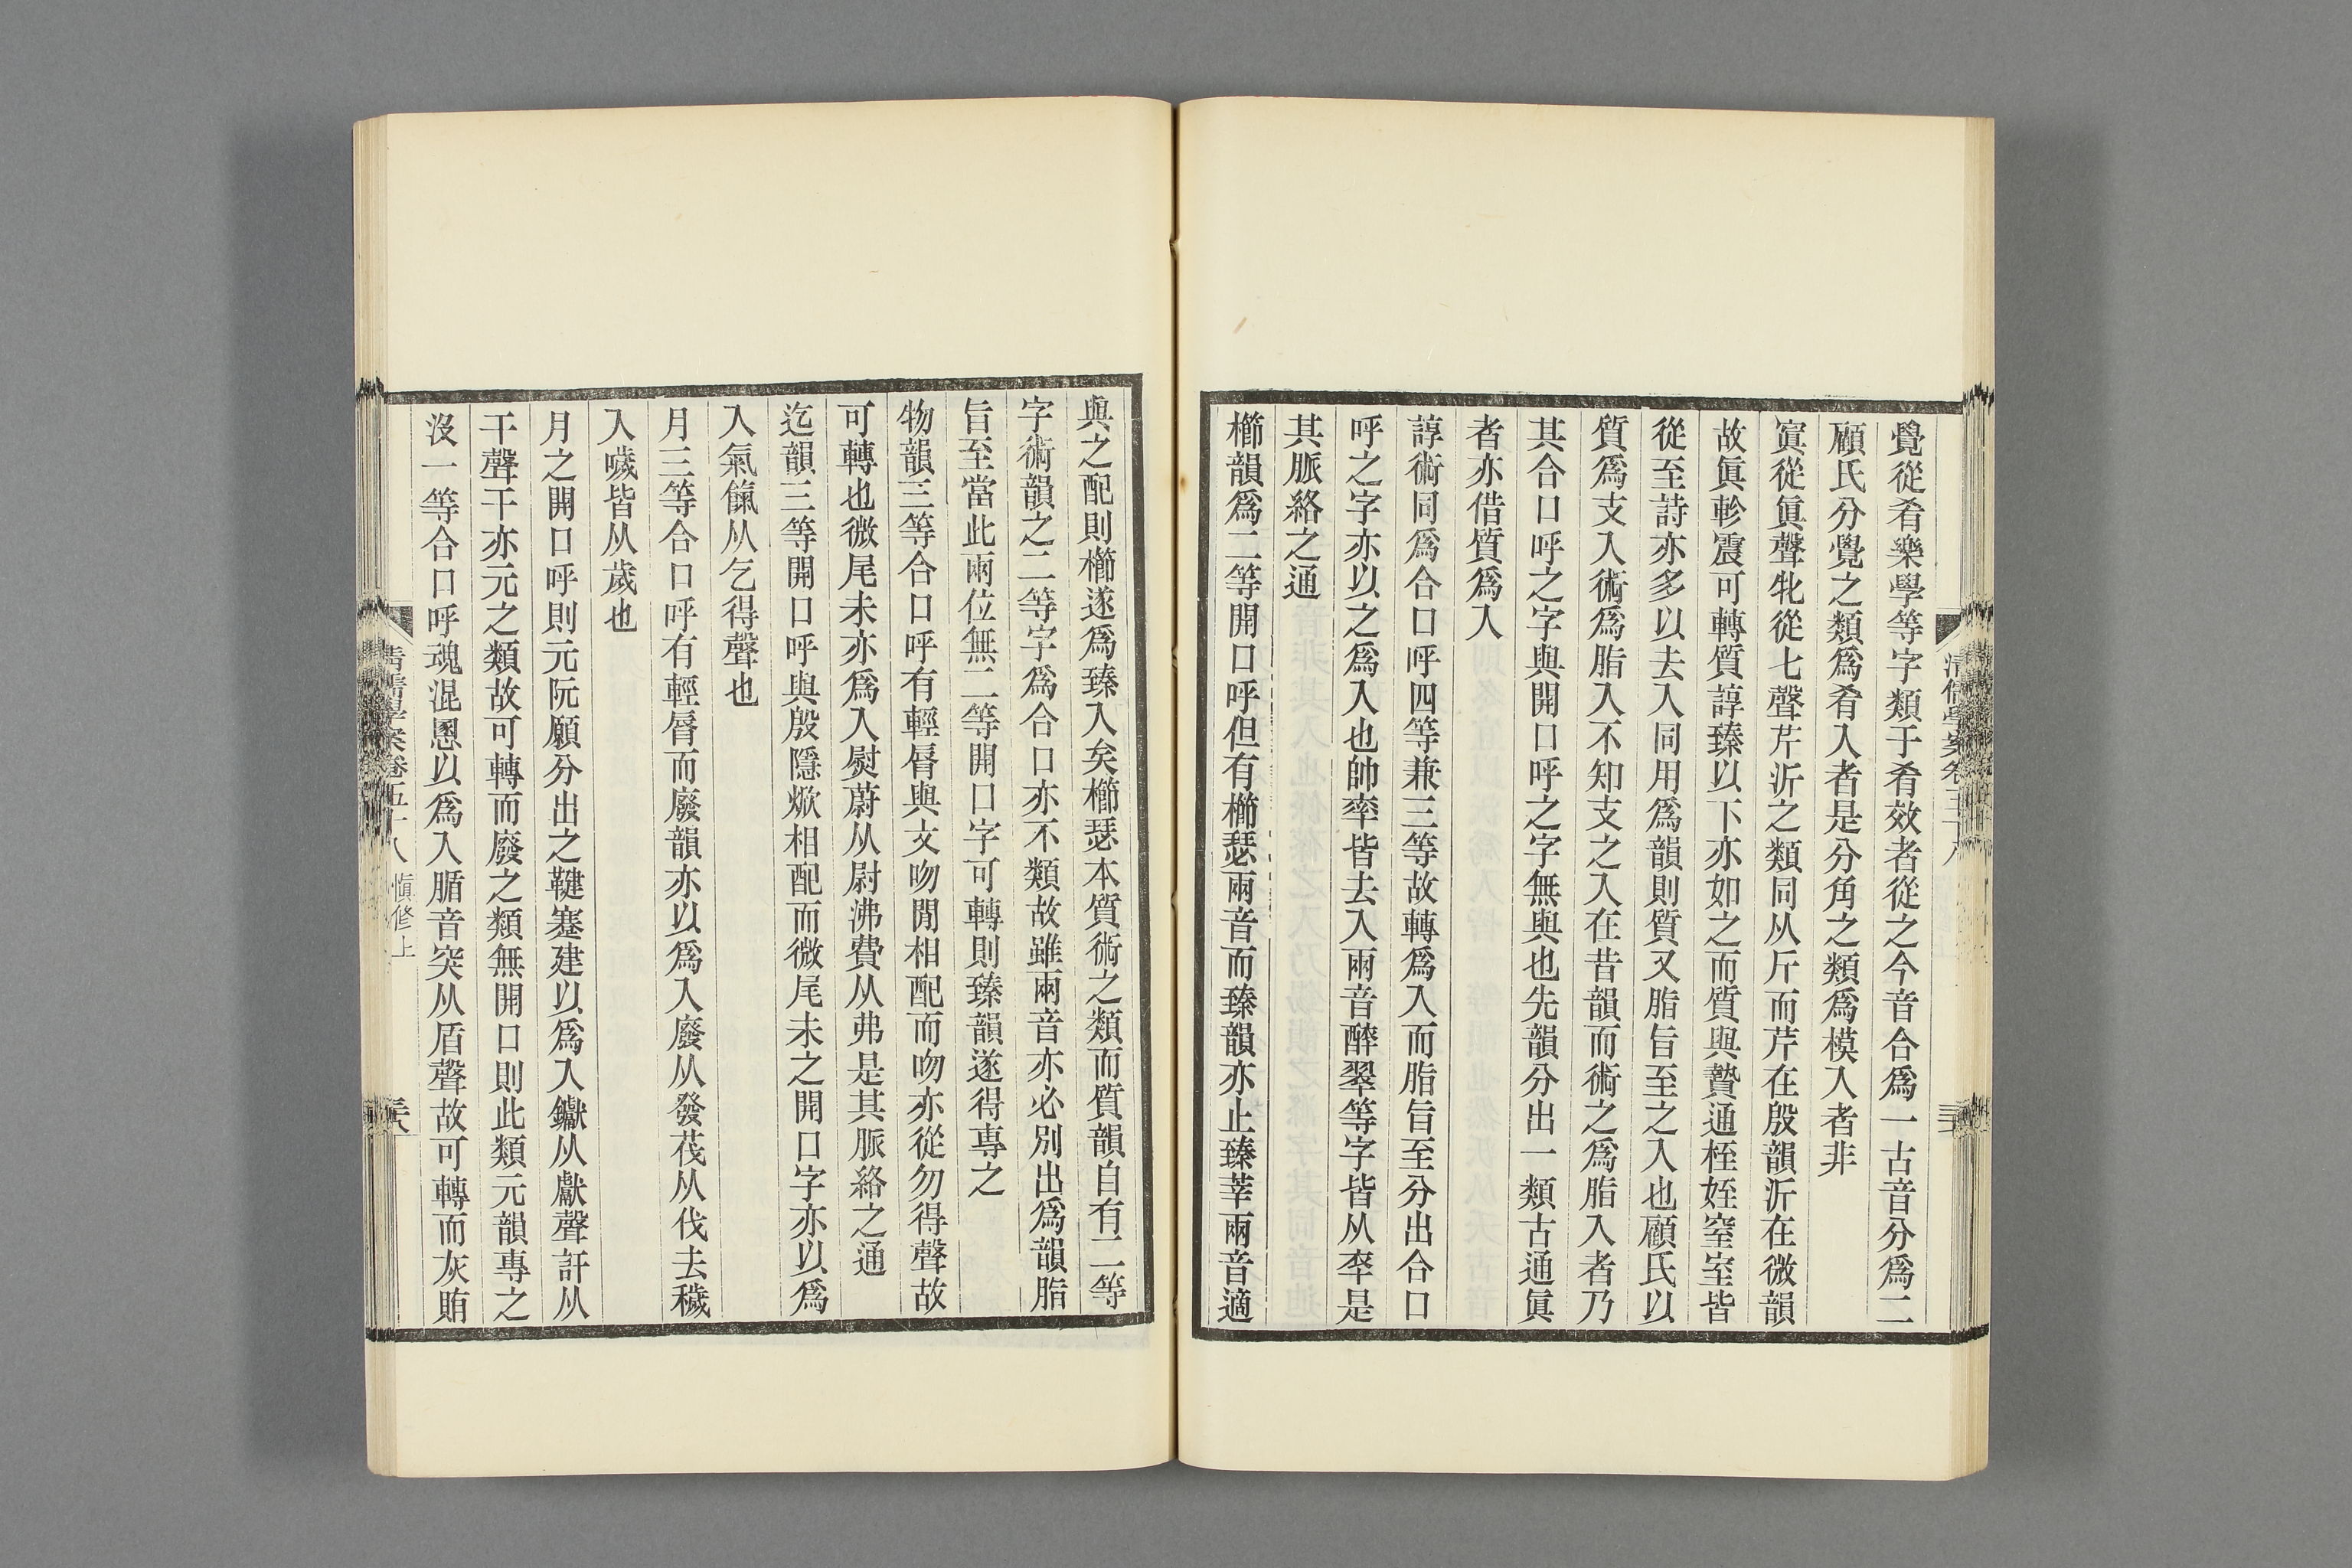 覺從肴樂學等字類于肴效者從之今音合爲一古音分爲二
顧氏分覺之類爲肴入者是分角之類爲模入者非
寘從眞聲牝從匕聲芹沂之類同从斤而芹在殷韻沂在微韻
故眞軫震可轉質諄臻以下亦如之而質與贄通桎姪窒室皆
從至詩亦多以去入同用爲韻則質又脂旨至之入也顧氏以
質爲支入術爲脂入不知支之入在昔韻而術之爲脂入者乃
其合口呼之字與開口呼之字無與也先韻分出一類古通眞
者亦借質爲入
諄術同爲合口呼四等兼三等故轉爲入而脂旨至分出合口
呼之字亦以之爲入也帥率皆去入兩音醉翠等字皆从卒是
其脈絡之通
櫛韻爲二等開口呼但有櫛瑟兩音而臻韻亦止臻莘兩音適
與之配則櫛遂爲臻入矣櫛瑟本質術之類而質韻自有二等
字術韻之二等字爲合口亦不類故雖兩音亦必別出爲韻脂
旨至當此兩位無二等開口字可轉則臻韻遂得專之
物韻三等合口呼有輕脣與文吻問相配而吻亦從勿得聲故
可轉也微尾未亦爲入熨蔚从尉沸費从弗是其脈絡之通
迄韻三等開口呼與殷隱焮相配而微尾未之開口字亦以爲
入氣餼从乞得聲也
月三等合口呼有輕脣而廢韻亦以爲入廢从發茷从伐去穢
入噦皆从歲也
月之開口呼則元阮願分出之鞬蹇建以爲入钀从獻聲訐从
干聲干亦元之類故可轉而廢之類無開口則此類元韻專之
沒一等合口呼魂混慁以爲入腯音突从盾聲故可轉而灰賄
清儒學案卷五十八
愼修上